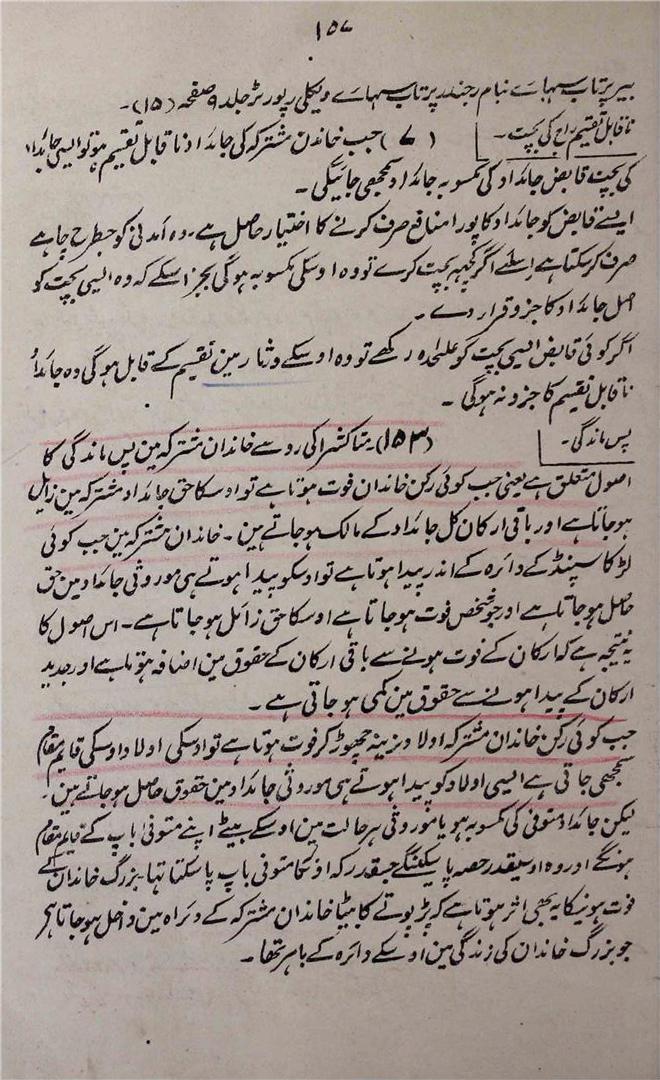 ۱۵۷
بیرپرتاب سہاے بنام رجندرپرتاب سہاے ویکلی رپورٹر جلد ۹ صفحہ (۱۵)۔
ناقابل تقسیم راج کی بچت۔ (۷) جب خاندان مشترکہ کی جائداد ناقابل تقسیم ہو تو ایسی جائداد
کی بچت قابض جائداد کی مکسوبہ جائداد سمجھی جائیگی۔
ایسے قابض کو جائداد کا پورا منافع صرف کرنے کا اختیار حاصل ہے۔ وہ آمدنی کو جسطرح چاہے
صرف کرسکتا ہے اسلئے اگر کچھ بچت کرے تو وہ اوسکی مکسوبہ ہوگی بجز اسکے کہ وہ ایسی بچت کو
اصل جائداد کا جزو قرار دے۔
اگر کوئی قابض ایسی بچت کو علحدہ رکھے تو وہ اوسکے ورثا رمین تقسیم کے قابل ہوگی وہ جائداد
ناقابل تقسیم کا جزو نہ ہوگی۔
پس ماندگی۔ (۱۵۳) متاکشرا کی رو سے خاندان مشترکہ مین پس ماندگی کا
اصول متعلق ہے یعنی جب کوئی رکن خاندان فوت ہوتا ہے تو اوسکا حق جائداد مشترکہ مین زایل
ہوجاتا ہے اور باقی ارکان کل جائداد کے مالک ہوجاتے ہین۔ خاندان مشترکہ مین جب کوئی
لڑکا سپنڈ کے دائرہ کے اندر پیدا ہوتا ہے تو اوسکو پیدا ہوتے ہی موروثی جائداد مین حق
حاصل ہوجاتا ہے اور جو شخص فوت ہوجاتا ہے اوسکا حق زائل ہوجاتا ہے۔ اس اصول کا
یہ نتیجہ ہے کہ ارکان کے فوت ہونے سے باقی ارکان کے حقوق مین اضافہ ہوتا ہے اور جدید
ارکان کے پیدا ہونے سے حقوق مین کمی ہوجاتی ہے۔
جب کوئی رکن خاندان مشترکہ اولاد نرینہ چھوڑ کر فوت ہوتا ہے تو اوسکی اولاد اوسکی قایم مقام
سمجھی جاتی ہے ایسی اولاد کو پیدا ہوتے ہی موروثی جائداد مین حقوق حاصل ہوجاتے ہین۔
لیکن جائداد متوفی کی مکسوبہ ہو یا موروثی ہر حالت مین اوسکے بیٹے اپنے متوفی باپ کے قایم مقام
ہونگے اور وہ اوسیقدر حصہ پاسکینگے جسقدر کہ اونکا متوفی باپ پاسکتا تہا۔ بزرگ خاندان کے
فوت ہونیکا یہ بھی اثر ہوتا ہے کہ پڑپوتے کا بیٹا خاندان مشترکہ کے دائرہ مین داخل ہوجاتا ہے
جو بزرگ خاندان کی زندگی مین اوسکے دائرہ کے باہر تھا۔